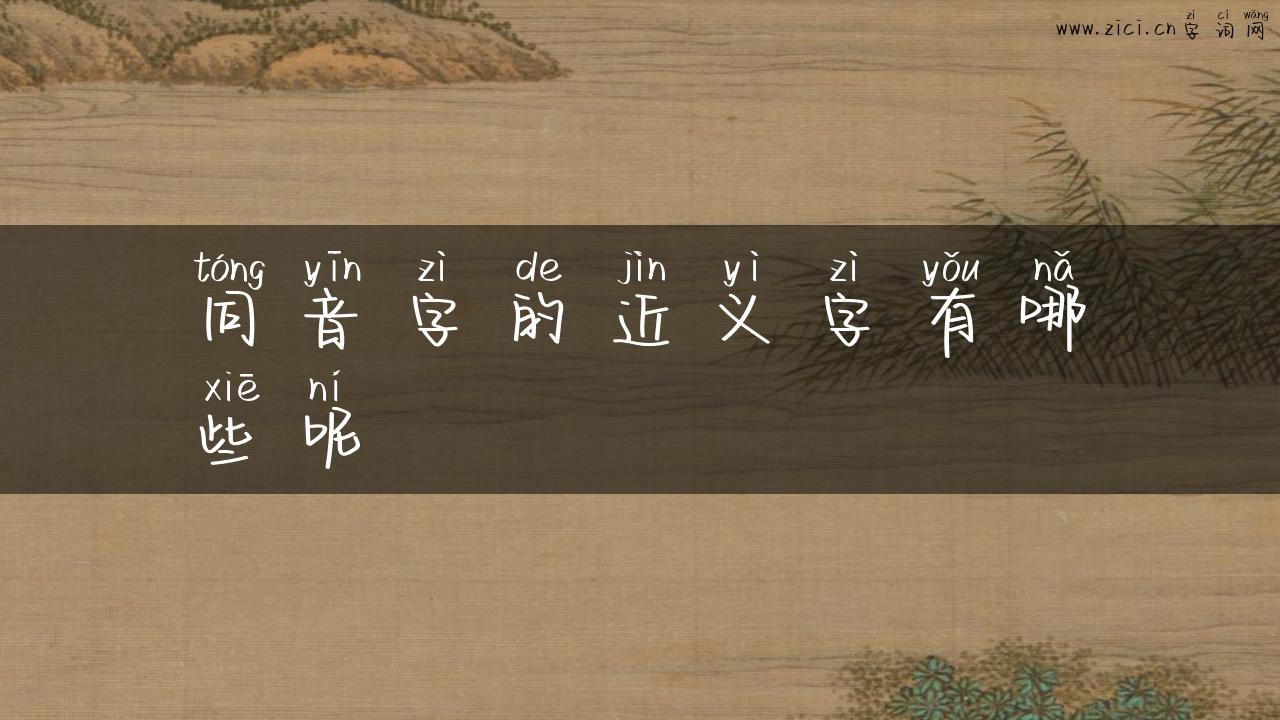 zì cí wǎng
www.zici.cn 字词网
tóng yīn zì de jìn yì zì yǒu nǎ
同音字的近义字有哪
xiē ní
些呢